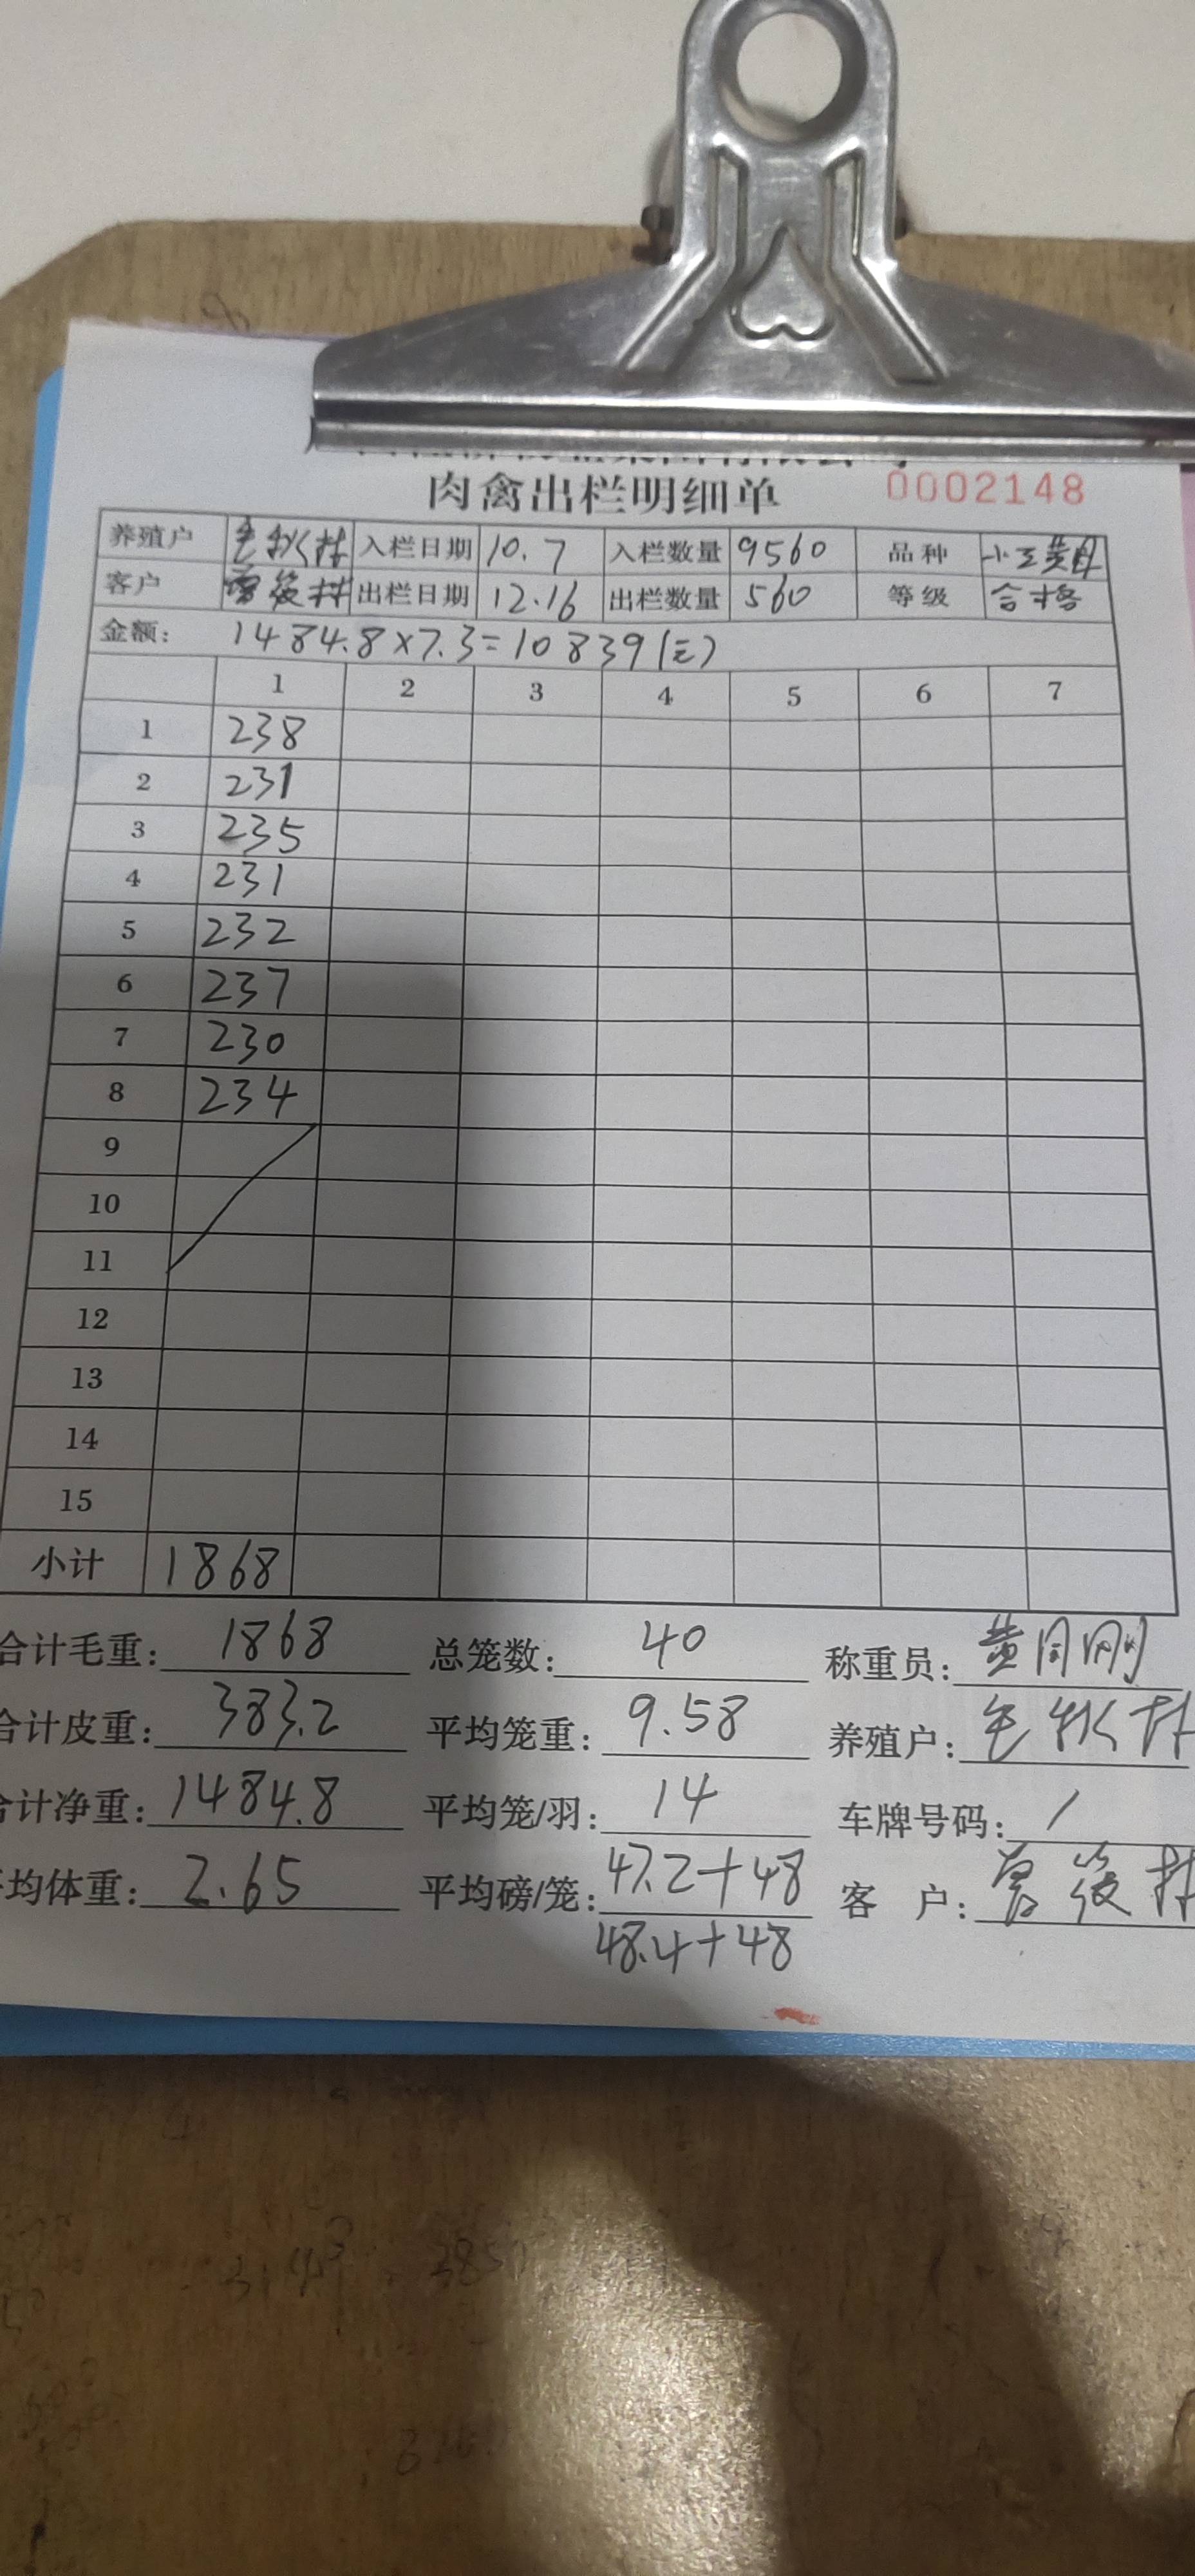 肉禽出栏明细单 0002148
养殖户 毛秋林 入栏日期 10.7 入栏数量 9560 品种
客户 曾筱林 出栏日期 12.16 出栏数量 560 等级 合格
金额: 1484.8×7.3=10839(元)
1 2 3 4 5 6 7
1 238
2 231
3 235
4 231
5 232
6 237
7 230
8 234
9
10
11
12
13
14
15
小计 1868
合计毛重: 1868 总笼数: 40 称重员: 黄同刚
合计皮重: 383.2 平均笼重: 9.58 养殖户: 毛秋林
合计净重: 1484.8 平均笼/羽: 14 车牌号码: /
平均体重: 2.65 平均磅/笼: 47.2+48 客 户: 曾筱林
48.4+48